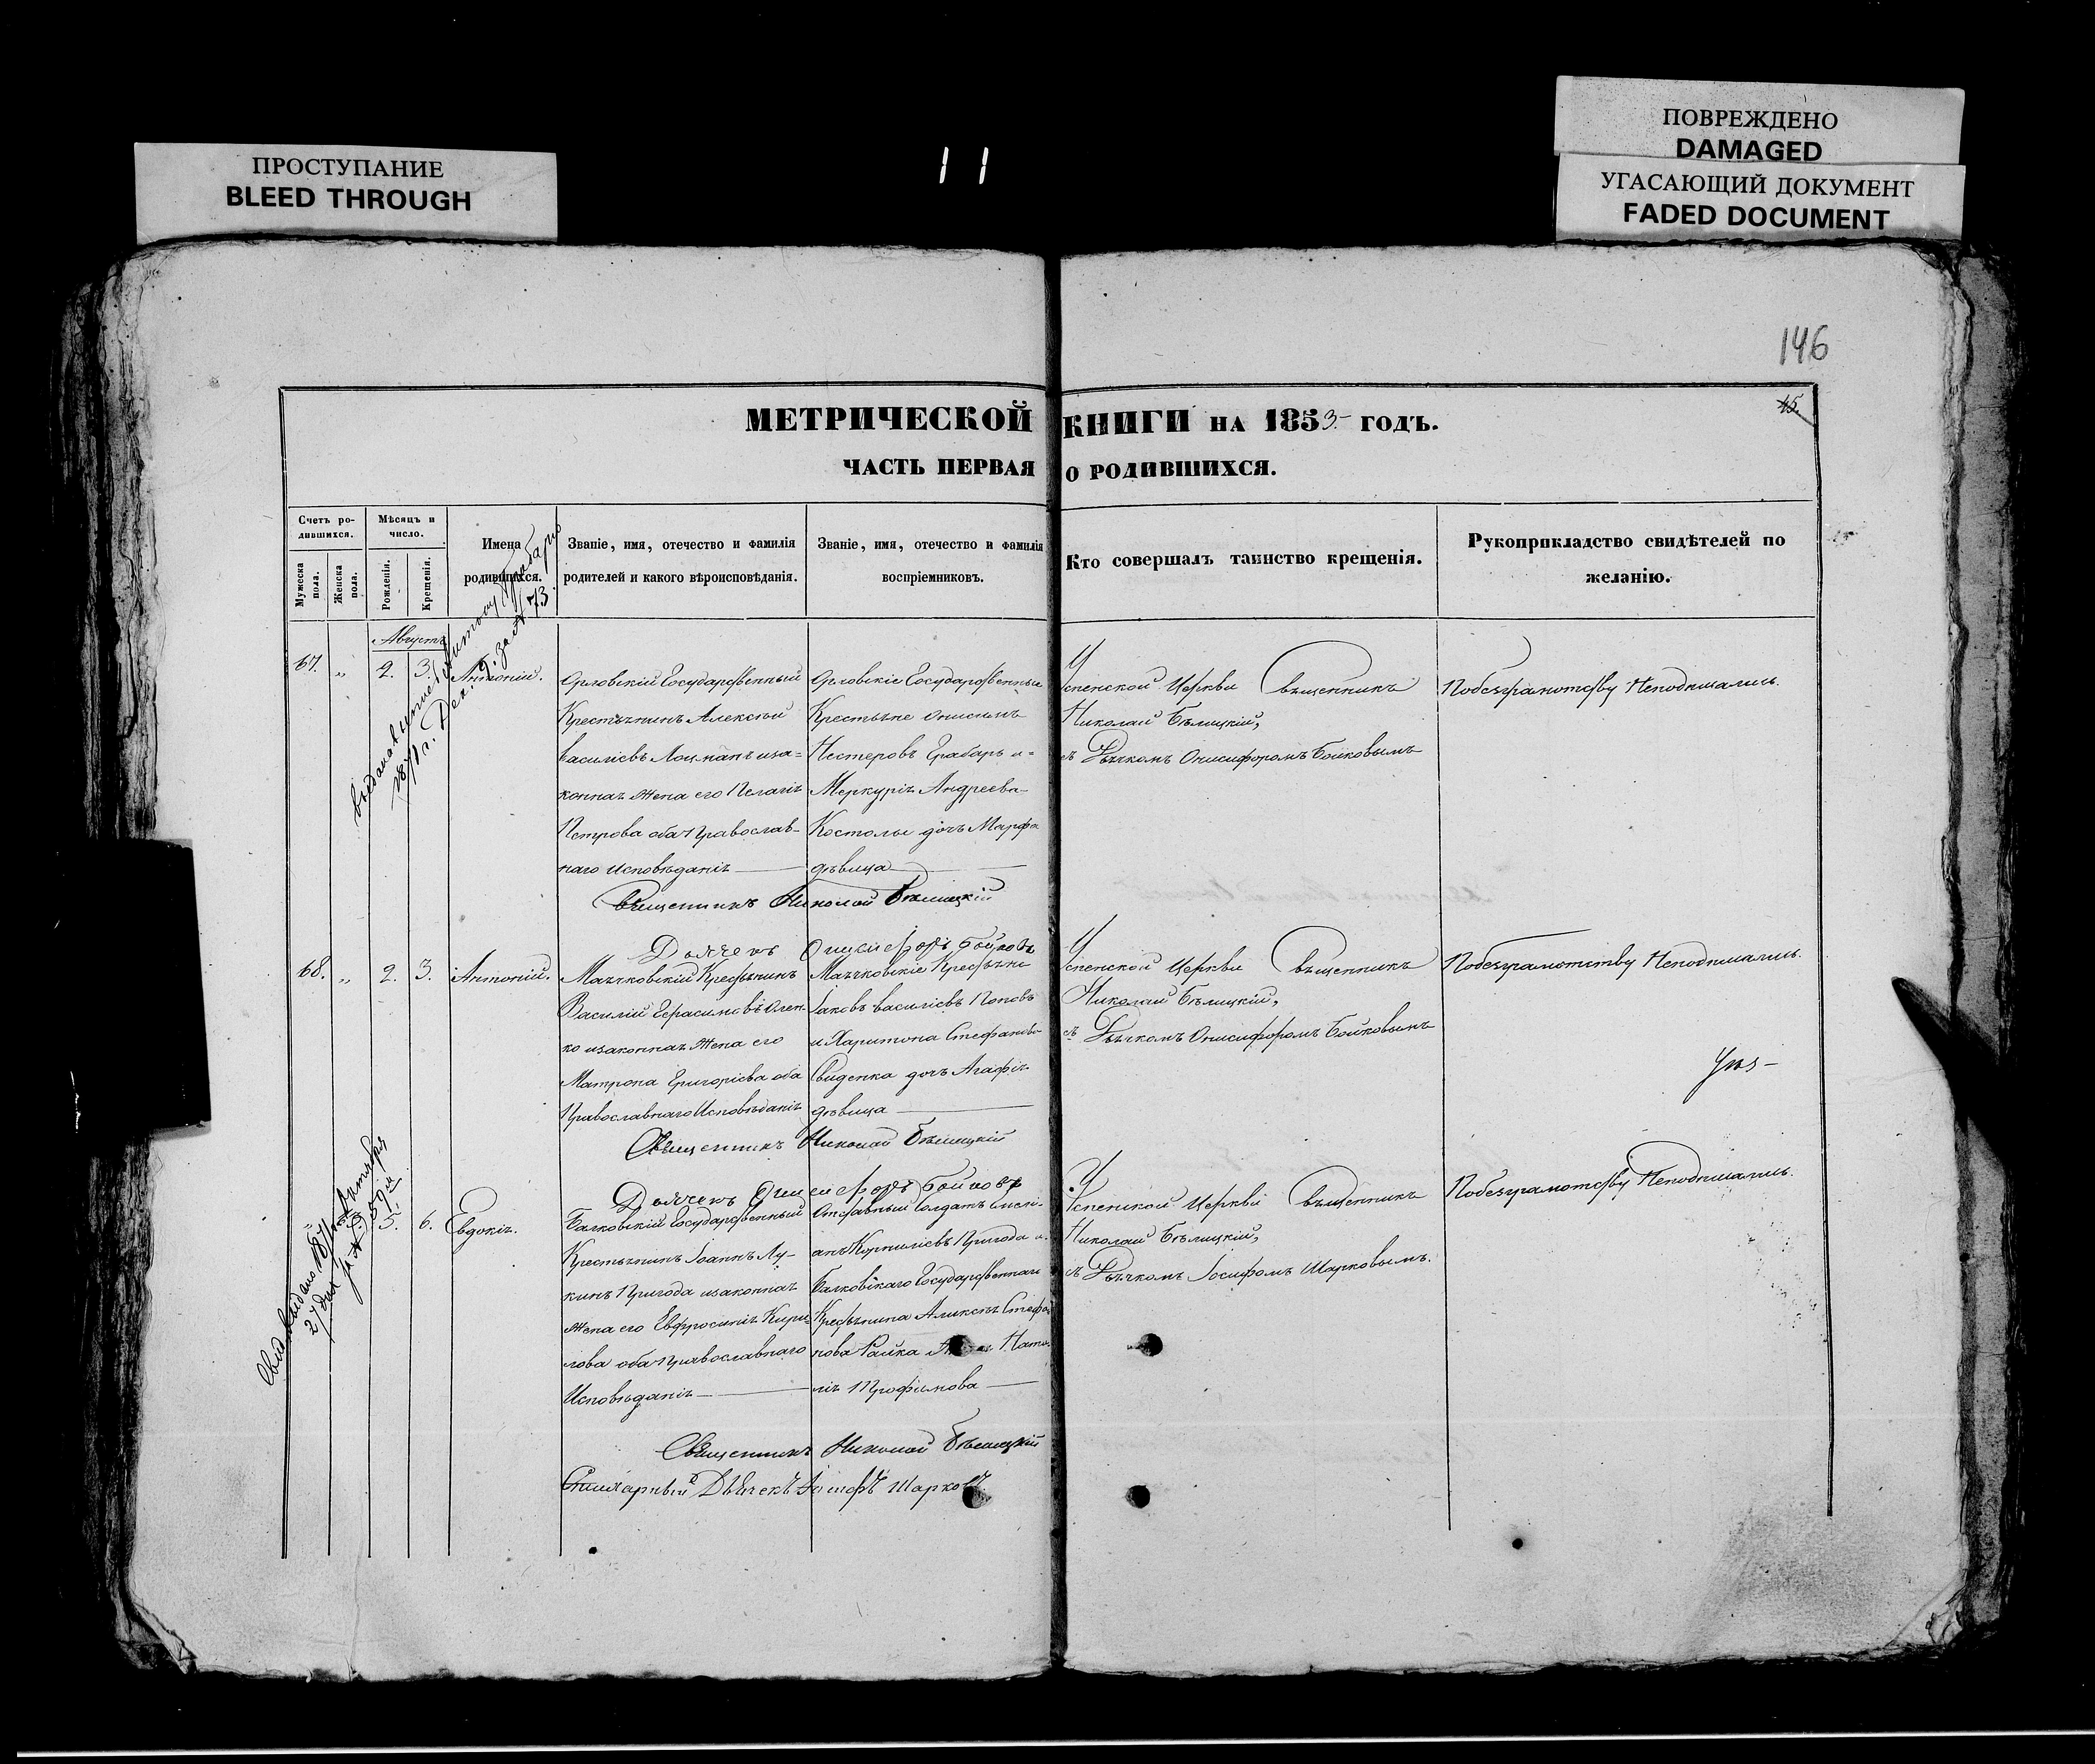 ПРОСТУПАНИЕ
BLEED THROUGH
11
ПОВРЕЖДЕНО
DAMAGED
УГАСАЮЩИЙ ДОКУМЕНТ
FADED DOCUMENT
146
45.
МЕТРИЧЕСКОЙ КНИГИ НА 1853 ГОДЪ.
ЧАСТЬ ПЕРВАЯ О РОДИВШИХСЯ.
Счетъ ро-
дившихся.
Мужеска пола.
Женска пола.
Мѣсяцъ и
число.
Рожденія.
Крещенія.
Имена
родившихся.
Званіе, имя, отечество и фамилія
родителей и какого вѣроисповѣданія.
Званіе, имя, отечество и фамилія
воспріемниковъ.
Кто совершалъ таинство крещенія.
Рукоприкладство свидѣтелей по
желанію.
Августъ
67. „ 2. 3. Антоній.
Орловскій Государственный
Крестьянинъ Алексѣй
Василіевъ иза=
конная жена его Пелагія
Петрова оба Православ-
наго Исповѣданія
Орловскіе Государственные
Крестьяне Онисимъ
Нестеровъ Грабарь и=
Меркурія Андреева
дочь Марфа
дѣвица
Успенской Церкви Священникъ
Николай Бѣлицкій,
съ Дьячкомъ Онисифоромъ Бойковымъ
По безграмотству Неподписались.
Священникъ Николай Бѣлицкій
Дьячекъ Онисифоръ Бойковъ
68. „ 2. 3. Антоній.
Маячковскій Крестьянинъ
Василій Герасимовъ
ко изаконная жена его
Матрона Григоріева оба
Православнаго Исповѣданія
Маячковскіе Крестьяне
Іаковъ Василіевъ Поповъ
и Харитона Стефанова
Свиденка дочь Агафія
дѣвица
Успенской Церкви Священникъ
Николай Бѣлицкій,
съ Дьячкомъ Онисифоромъ Бойковымъ
По безграмотству Неподписались.
Священникъ Николай Бѣлицкій
Дьячекъ Онисифоръ Бойковъ
5. 6. Евдокія.
Государственный
Крестьянинъ Іоаннъ Лу-
кинъ Пригода изаконная
жена его Евфросинія Кири-
лова оба Православнаго
Исповѣданія
Отставный Солдатъ
Корниліевъ Пригода и
Государственнаго
Крестьянина Алексѣя Стефа
нова Райка Ната-
лія Трофимова
Успенской Церкви Священникъ
Николай Бѣлицкій,
съ Дьячкомъ Іосифомъ Шарковымъ.
По безграмотству Неподписались.
Священникъ Николай Бѣлицкій
Дьячекъ Іосифъ Шарковъ